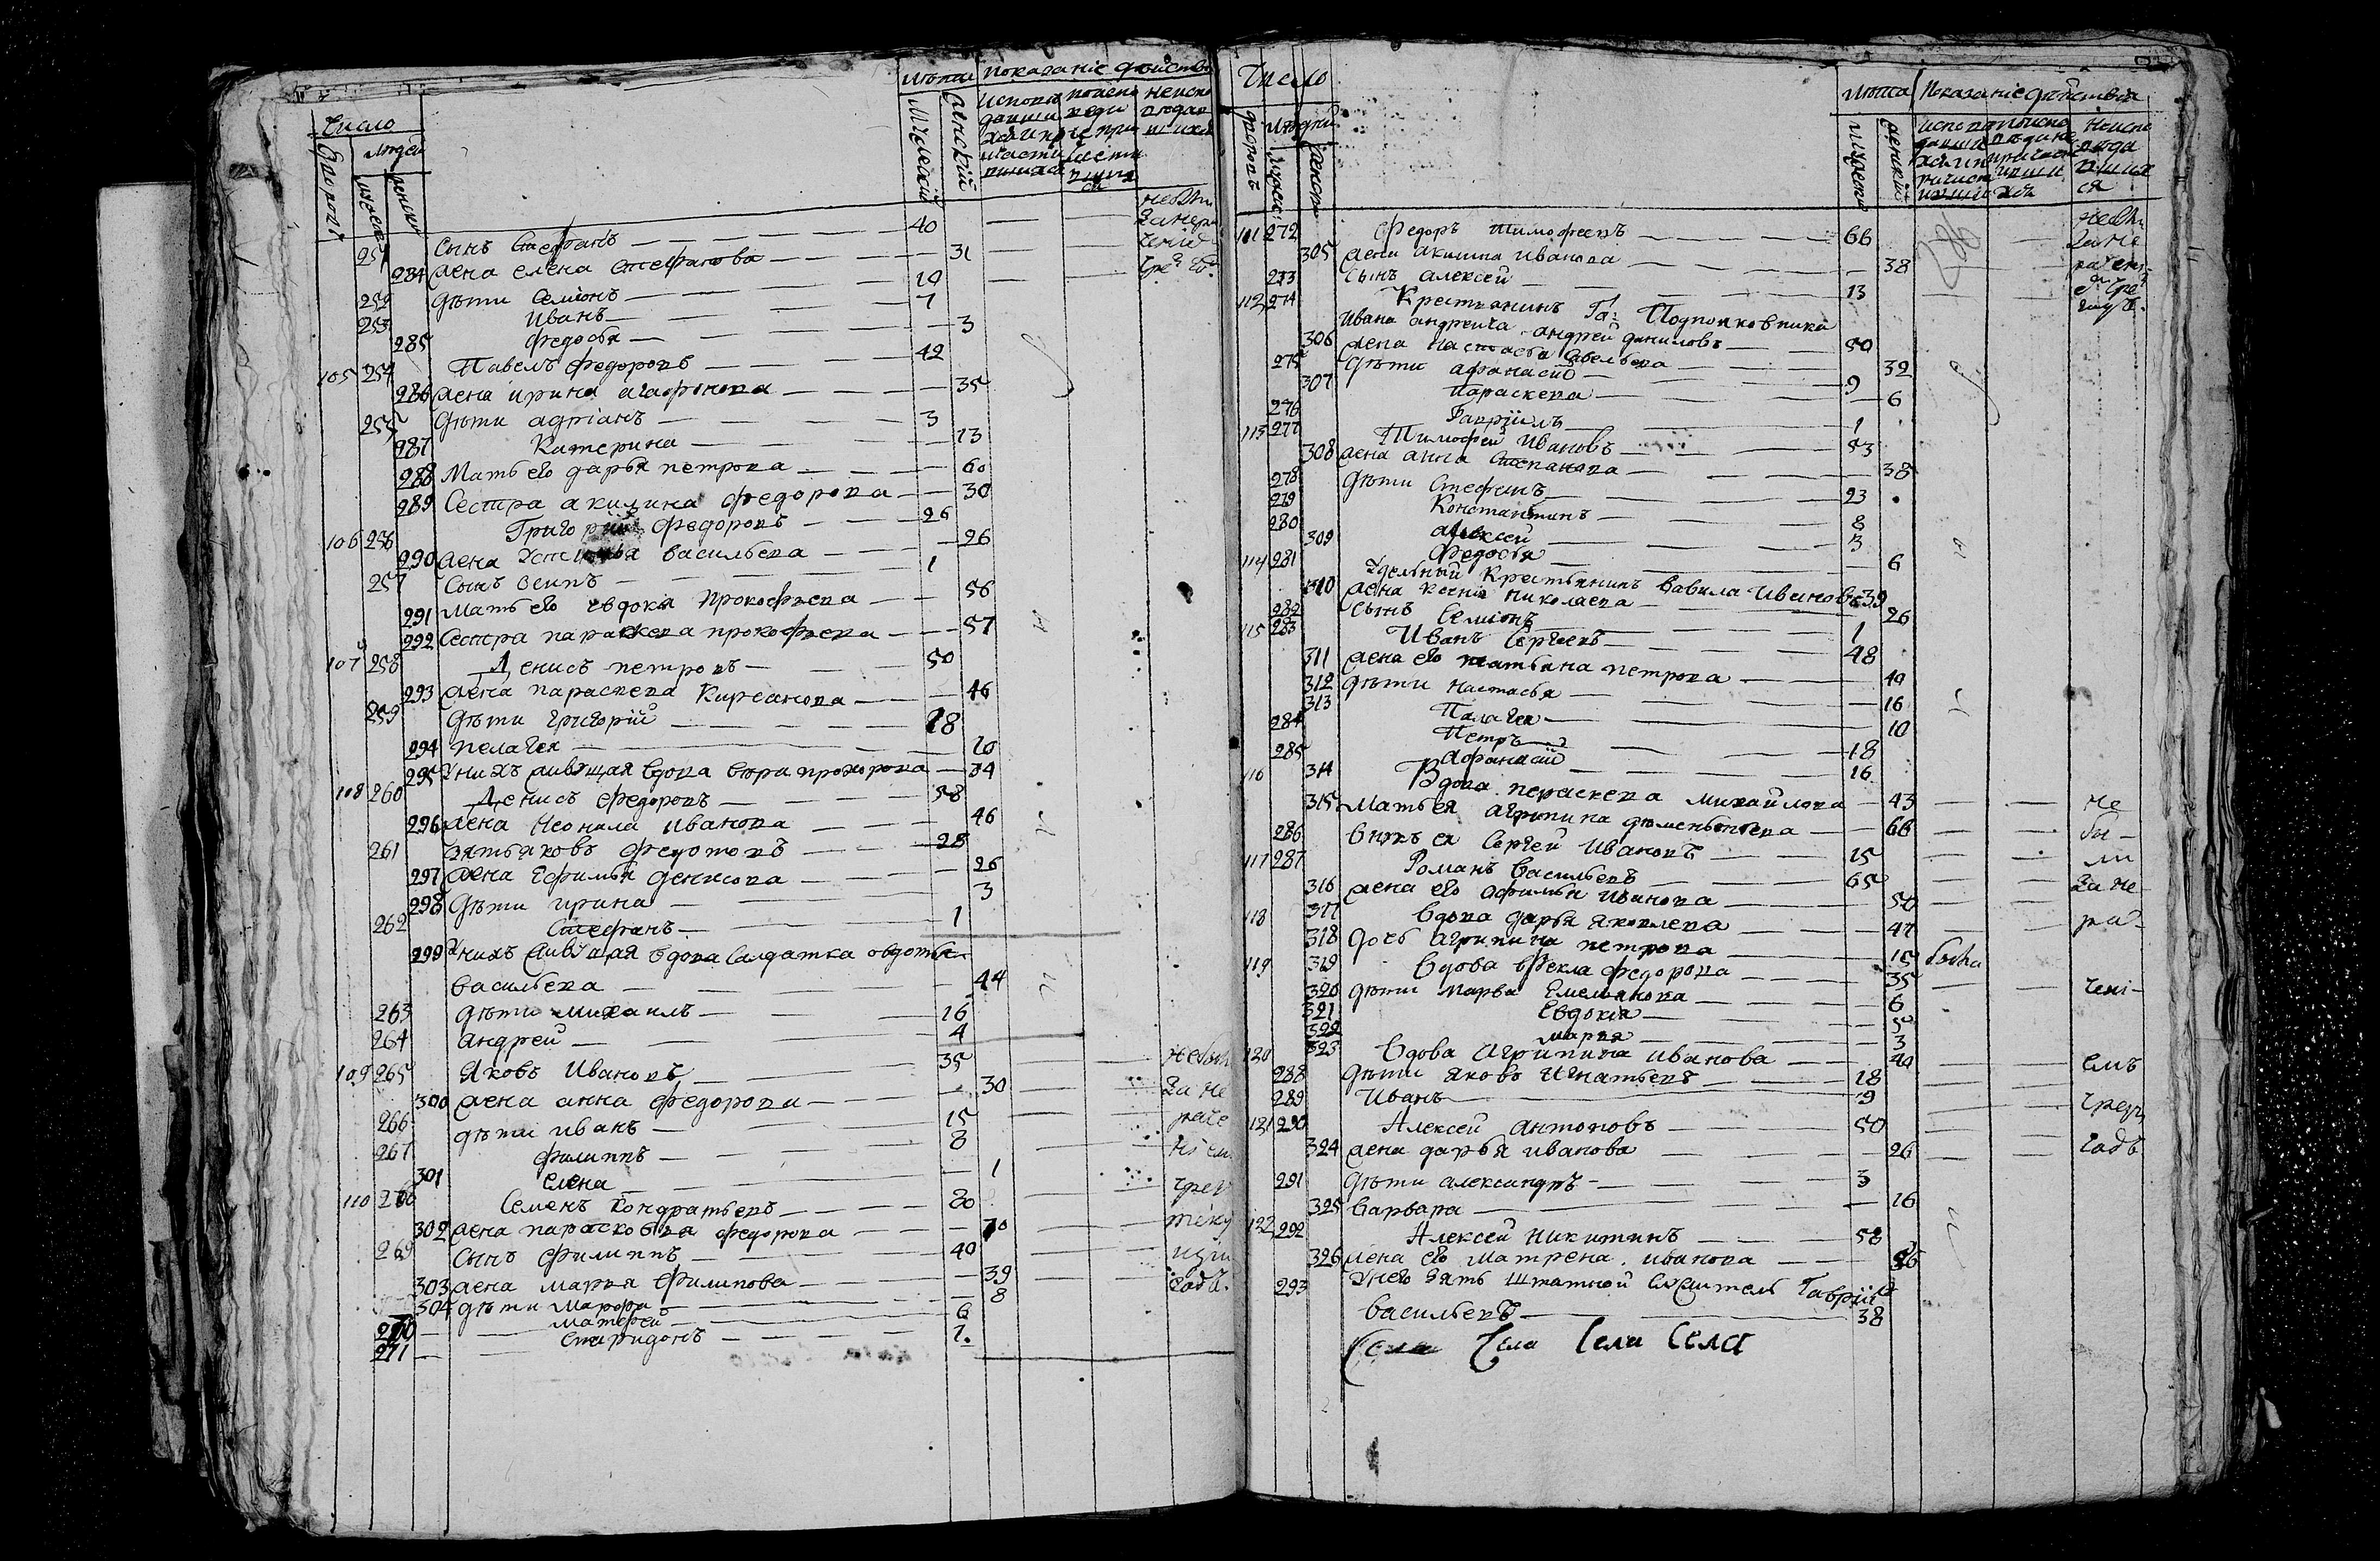 Число
Людей
Лѣта Показаніе дѣйства
Мужескій Женскій
251 Сынъ Стефанъ 40
284 жена елена Стефанова 31
252 дѣти Семіонъ 10
253 Иванъ 7
285 федосья 3
105 254 Павелъ Федоровъ 42
286 жена ирина агафонова 35
255 дѣти адріанъ 3
287 Катерина 13
288 Мать его дарья петрова 60
289 Сестра акилина федорова 30
106 256 Григорій Федоровъ 26
290 жена васильева 26
257 Сынъ осипъ 1
291 Мать его евдокія Прокофьева 56
292 Сестра параскева прокофьева 57
107 258 Денисъ петровъ 50
293 жена параскева Кирсанова 46
259 дѣти григорій 18
294 пелагея 10
295 Унихъ живущая вдова вѣра прохорова 34
108 260 Денисъ Федоровъ 58
296 жена Неонила иванова 46
261 зять яковъ федотовъ 28
297 жена Ефимья денисова 26
298 дѣти ирина 3
262 Стефанъ 1
299 Унихъ живущая вдова Салдатка овдотья
васильева 44
263 дѣти михаилъ 16
264 андрей 4
109 265 яковъ Ивановъ 35
300 жена анна федорова 30
266 дѣти иванъ 15
267 филиппъ 8
301 елена 1
110 268 Семенъ Кондратьевъ 80
302 жена парасковья федорова 70
269 Сынъ филиппъ 40
303 жена марья филипова 39
304 дѣти Марфа 8
270 матфей 6
271 Спиридонъ 1.
Число
Людей
Лѣта Показаніе дѣйства
111 272 Федоръ тимофеевъ 66
305 жена акилина иванова 38
273 Сынъ алексей 13
112 274 Крестьянинъ Го: Подполковника
Ивана андреича андрей даниловъ 50
306 жена настасья савельева 32
275 дѣти афанасій 9
307 Параскева 6
276 Гаврiилъ 1
113 277 Тимофей Ивановъ 53
308 жена анна Степанова 38
278 дѣти Стефанъ 23
279 Константинъ 8
280 алексей 3
309 Федосья 6
114 281 Удельный Крестьянинъ Вавила Ивановъ 39
310 жена Ксенія николаева 26
282 Сынъ Семіонъ 1
115 283 Иванъ Сергеевъ 48
311 жена его татьяна петрова 40
312 дѣти настасья 16
313 Палагея 10
284 Петръ 18
285 Афанасій 16
116 314 Вдова пераскева михайлова 43
315 Мать ея агрипина 66
286 внукъ ея Сергей Ивановъ 15
117 287 Романъ Васильевъ 65
316 жена его афимья иванова 50
118 317 вдова дарья яковлева 47
318 дочь агрипина петрова 15
119 319 вдова ѳекла федорова 35
320 дѣти марва Емельянова 6
321 Евдокія 5
322 марья 3
120 323 вдова агрипина иванова 40
288 дѣти яковъ Игнатьевъ 18
289 Иванъ 9
121 290 Алексей антоновъ 50
324 жена дарья иванова 26
291 дѣти александръ 3
325 Варвара 16
122 292 Алексей Никитинъ 58
326 жена его матрена иванова 56
293 Унего зять штатной служитель Гавріилъ
васильевъ 38
Села Села Села Села